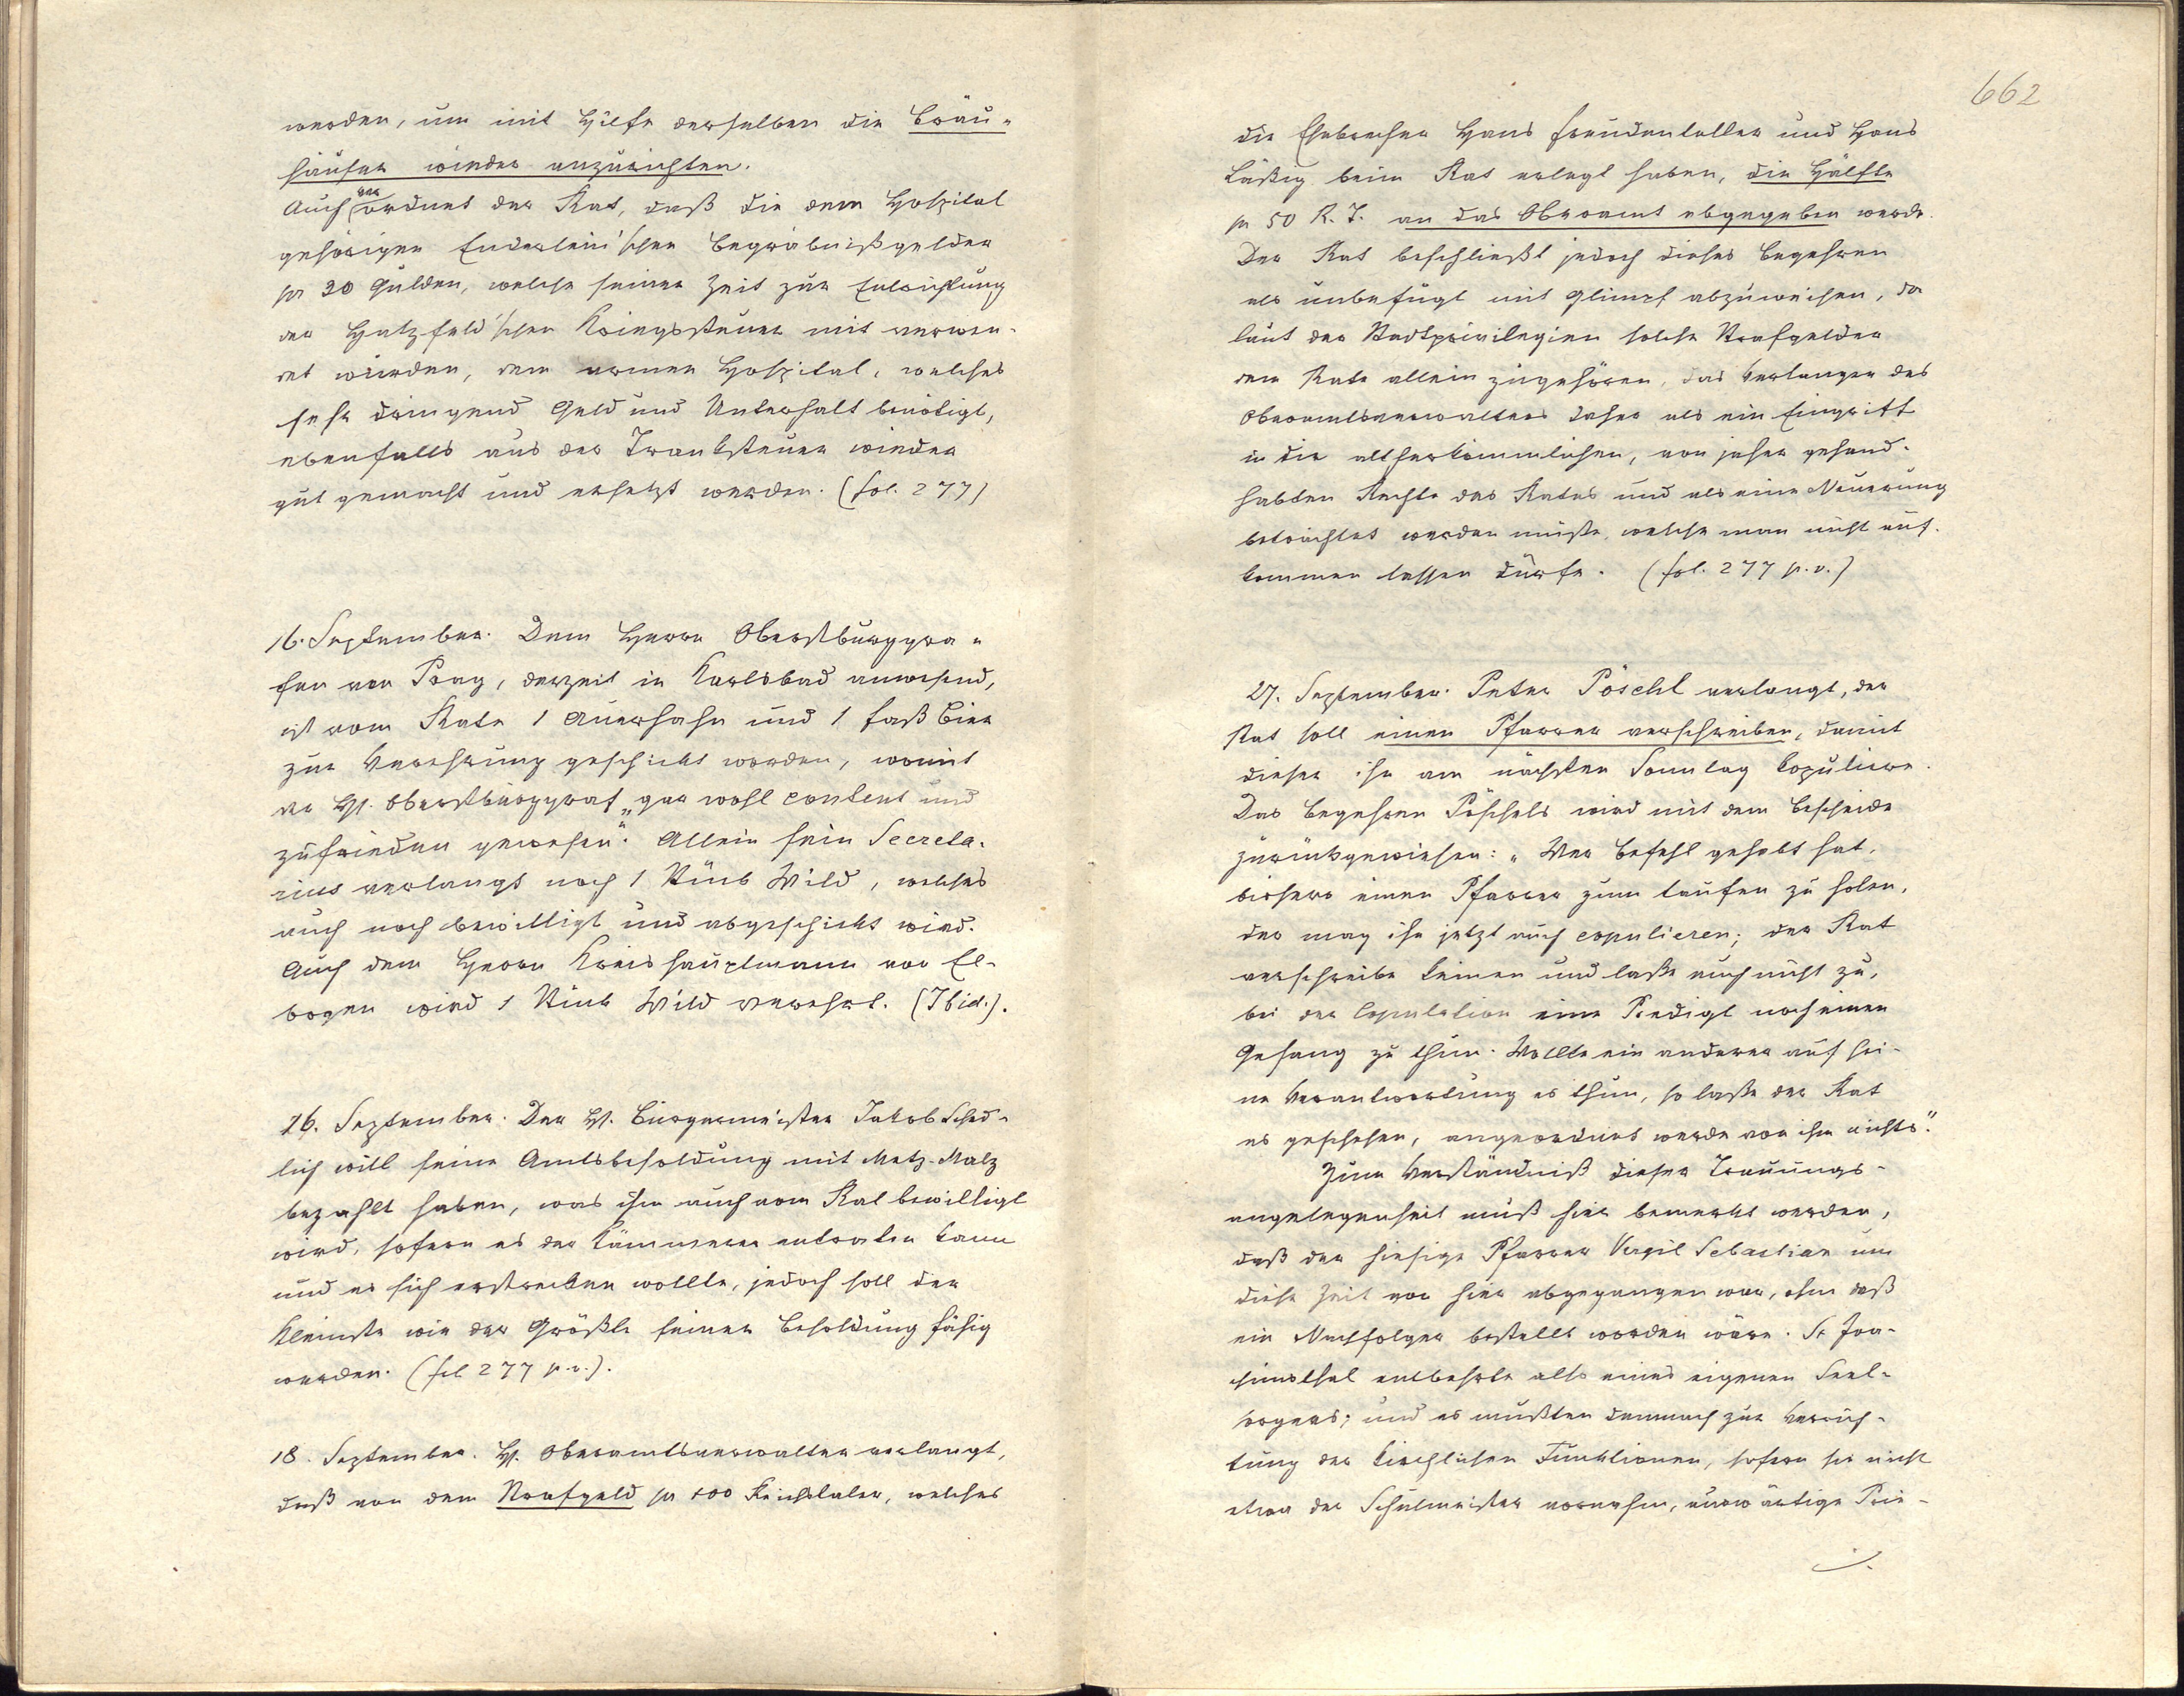 werden, um mit Hilfe derselben die Bräu-
häuser wieder anzurichten.
Auch verordnet der Rat, daß die dem Hospital
gehörigen Enderlein'schen Begräbnißgelder
pr 30 Gulden, welche seiner Zeit zur Entrichtung
der Hatzfeld'schen Kriegssteuer mit verwen-
det wurden, dem armen Hospital, welches
sehr dringend Geld und Unterhalt benötigt,
ebenfalls aus der Tranksteuer wieder
gut gemacht und ersetzt werden. (fol. 277)
16. September. Dem Herrn Oberstburggra-
fen von Prag, derzeit in Karlsbad anwesend,
ist vom Rate 1 Auerhahn und 1 Faß Bier
zur Verehrung geschickt worden, womit
der H. Oberstburggraf „gar wohl content und
zufrieden gewesen". Allein sein Secreta-
rius verlangt noch 1 Stück Wild, welches
auch noch bewilligt und abgeschickt wird.
Auch dem Herrn Kreishauptmann von El-
bogen wird 1 Stück Wild verehrt. (Ibid.).
16. September. Der H. Bürgermeister Jakob Sched-
lich will seine Amtsbesoldung mit Metz-Malz
bezahlt haben, was ihm auch vom Rat bewilligt
wird, sofern es der Kämmerer entraten kann
und es sich erstrecken wollte, jedoch soll der
Kleinste wie der Größte seiner Besoldung fähig
werden. (fol 277 p.v.).
18. September. H. Oberamtsverwalter verlangt,
daß von dem Strafgeld pr 100 Reichstaler, welches
662
die Ehebrecher Hans Freudentaller und Hans
Läßig beim Rat erlegt haben, die Hälfte
pr 50 R. T. an das Oberamt abgegeben werde.
Der Rat beschließt jedoch dieses Begehren
als unbefugt mit Glimpf abzuweisen, da
laut der Stadtprivilegien solche Strafgelder
dem Rate allein zugehören, das Verlangen des
Oberamtsverwalters daher als ein Eingriff
in die altherkömmlichen, von jeher gehand-
habten Rechte des Rates und als eine Neuerung
betrachtet werden müße, welche man nicht auf-
kommen lassen dürfe. (fol. 277 p.v.)
27. September. Peter Pöschl verlangt, der
Rat soll einen Pfarrer verschreiben, damit
dieser ihn am nächsten Sonntag kopuliere.
Das Begehren Pöschels wird mit dem Bescheide
zurückgewiesen: „Wer Befehl gehabt hat,
bishero einen Pfarrer zum taufen zu holen,
der mag ihn jetzt auch copulieren; der Rat
verschreibe keinen und laße auch nicht zu,
bei der Copulation eine Predigt noch einen
Gesang zu thun. Wollte ein anderer auf sei-
ne Verantwortung es thun, so laße der Rat
es geschehen, angeordnet werde von ihm nichts".
Zum Verständniß dieser Trauungs-
angelegenheit muß hier bemerkt werden,
daß der hiesige Pfarrer Vergil Sebastian um
diese Zeit von hier abgegangen war, ohne daß
ein Nachfolger bestellt worden wäre. St Joa-
chimsthal entbehrte also eines eigenen Seel-
sorgers; und es mußten demnach zur Verrich-
tung der kirchlichen Funktionen, sofern sie nicht
etwa der Schulmeister vornahm, auswärtige Prie-